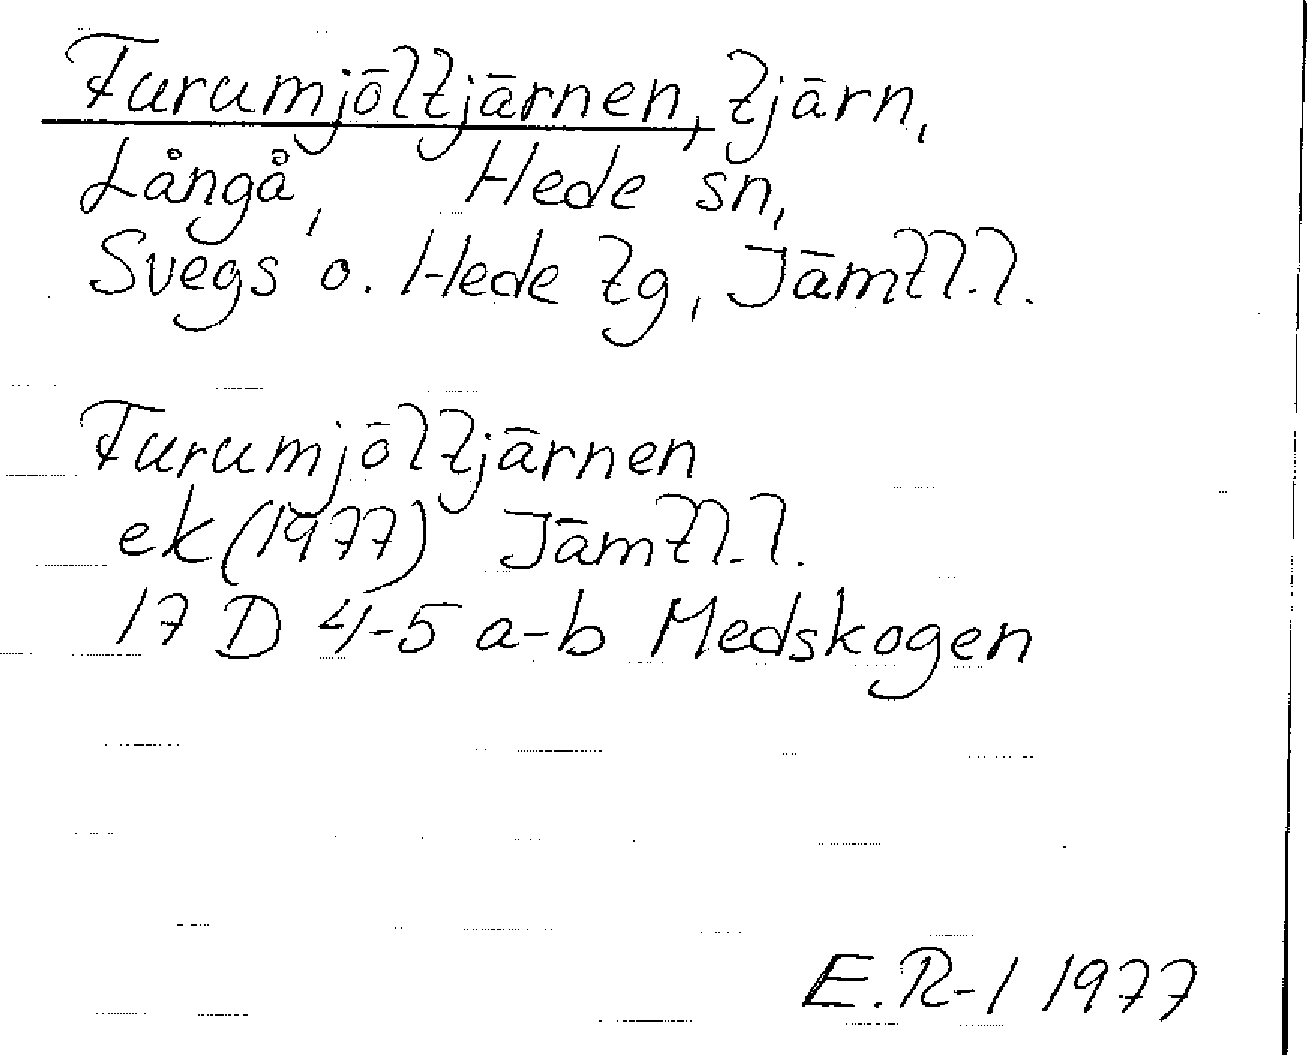 Furumjöltjärnen, tjärn,
Långå, Hede sn,
Svegs o. Hede tg, Jämtl.l.
Furumjöltjärnen
ek (1977) Jämtl.l.
17 D 4-5 a-b Medskogen
E.R-l 1977